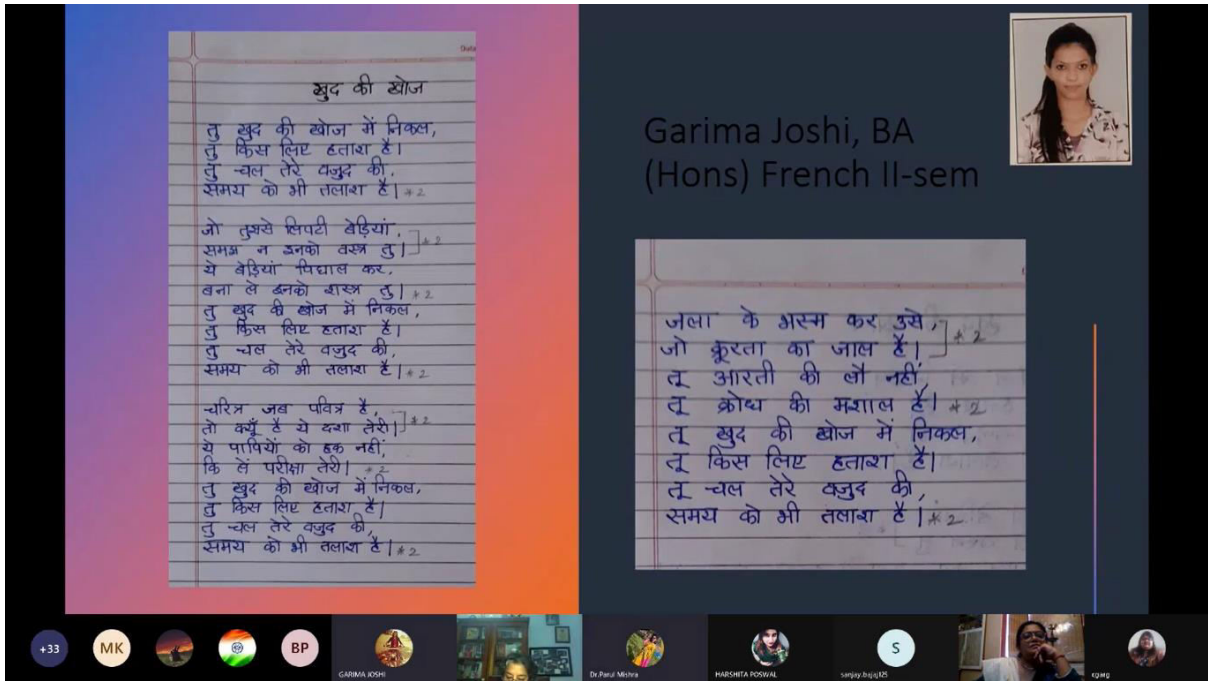 Date
खुद की खोज
तु खुद की खोज में निकल,
तु किस लिए हताश है।
तु चल तेरे वजुद की,
समय को भी तलाश है। *2
जो तुझसे लिपटी बेड़ियां,
समझ न इनको वस्त्र तु। ] *2
ये बेड़ियां पिघाल कर,
बना ले इनको शस्त्र तु। *2
तु खुद की खोज में निकल,
तु किस लिए हताश है।
तु चल तेरे वजुद की,
समय को भी तलाश है। *2
चरित्र जब पवित्र है,
तो क्यूँ है ये दशा तेरी। ] *2
ये पापियों को हक नहीं,
कि लें परीक्षा तेरी। *2
तु खुद की खोज में निकल,
तु किस लिए हताश है।
तु चल तेरे वजुद की,
समय को भी तलाश है। *2
Garima Joshi, BA
(Hons) French II-sem
जला के भस्म कर उसे,
जो क्रूरता का जाल है। ] *2
तू आरती की लौ नहीं,
तू क्रोध की मशाल है। *2
तू खुद की खोज में निकल,
तू किस लिए हताश है।
तू चल तेरे वजुद की,
समय को भी तलाश है। *2
+33
MK
BP
GARIMA JOSHI
Dr.Parul Mishra
HARSHITA POSWAL
S
sanjay.bajaj125
cgarg